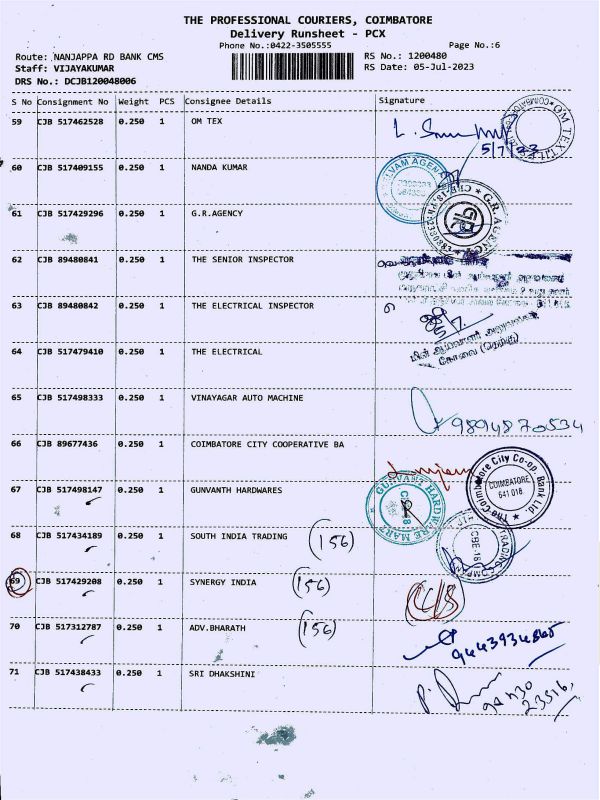 THE PROFESSIONAL COURIERS, COIMBATORE
Delivery Runsheet - PCX
Phone No.:0422-3505555
Page No.:6
Route: NANJAPPA RD BANK CMS
RS No.: 1200480
Staff: VIJAYAKUMAR
RS Date: 05-Jul-2023
DRS No.: DCJB120048006
S No Consignment No Weight PCS Consignee Details Signature
59 CJB 517462528 0.250 1 OM TEX
5/7/23
60 CJB 517409155 0.250 1 NANDA KUMAR
61 CJB 517429296 0.250 1 G.R.AGENCY
G.R. AGENCY
62 CJB 89480841 0.250 1 THE SENIOR INSPECTOR
63 CJB 89480842 0.250 1 THE ELECTRICAL INSPECTOR
64 CJB 517479410 0.250 1 THE ELECTRICAL
65 CJB 517498333 0.250 1 VINAYAGAR AUTO MACHINE
9894870534
66 CJB 89677436 0.250 1 COIMBATORE CITY COOPERATIVE BA
The Coimbatore City Co-op. Bank Ltd.
COIMBATORE
641 018.
67 CJB 517498147 0.250 1 GUNVANTH HARDWARES
GUNVANTH HARDWARE MART
68 CJB 517434189 0.250 1 SOUTH INDIA TRADING (156)
CBE-18
69 CJB 517429208 0.250 1 SYNERGY INDIA (156)
70 CJB 517312787 0.250 1 ADV.BHARATH (156)
71 CJB 517438433 0.250 1 SRI DHAKSHINI